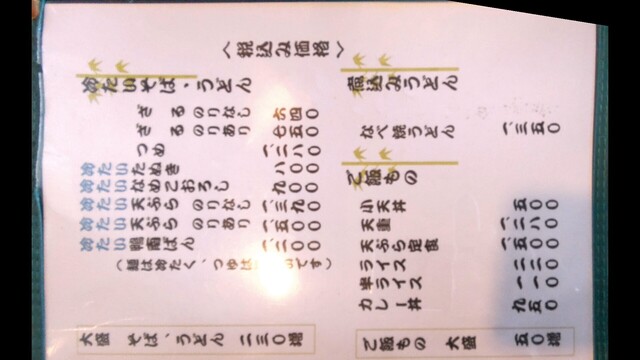 〈税込み価格〉
冷たいそば、うどん
ざる のりなし 六四〇
ざる のりあり 七五〇
つめ 一、二八〇
冷たいたぬき 八〇〇
冷たいなめこおろし 九〇〇
冷たい天ぷら のりなし 一、三九〇
冷たい天ぷら のりあり 一、五〇〇
冷たい鴨南ばん 一、二〇〇
(麺は冷たく、つゆは です)
大盛 そば、うどん 二三〇増
煮込みうどん
なべ焼うどん 一、三五〇
ご飯もの
小天丼 五〇〇
天重 一、二八〇
天ぷら定食 一、五〇〇
ライス 二二〇
半ライス 一一〇
カレー丼 九五〇
ご飯もの 大盛 五〇増